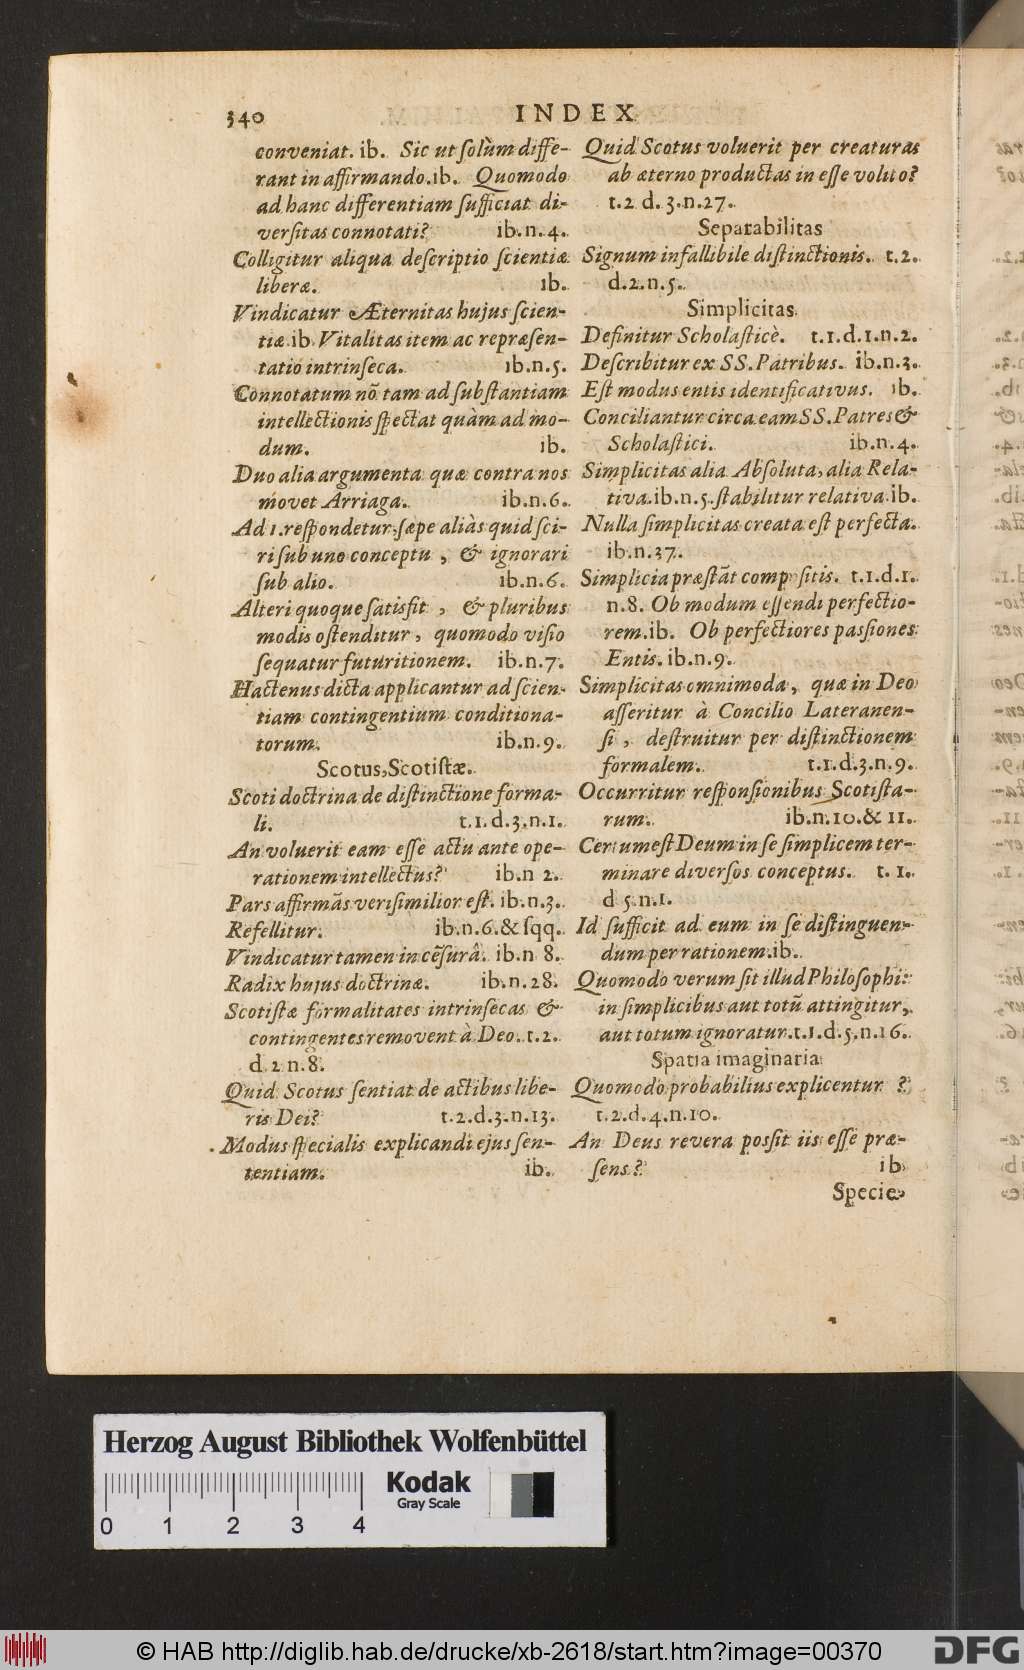 340 INDEX
conveniat. ib. Sic ut solùm diffe-
rant in affirmando.ib. Quomodo
ad hanc differentiam sufficiat di-
versitas connotati? ib.n.4.
Colligitur aliqua descriptio scientiæ
liberæ. ib.
Vindicatur Æternitas hujus scien-
tiæ.ib Vitalitas item ac repræsen-
tatio intrinseca. ib.n.5.
Connotatum nõ tam ad substantiam
intellectionis spectat quàm ad mo-
dum. ib.
Duo alia argumenta quæ contra nos
movet Arriaga. ib.n.6.
Ad 1.respondetur:sæpe aliàs quid sci-
ri sub uno conceptu, & ignorari
sub alio. ib.n.6.
Alteri quoque satisfit, & pluribus
modis ostenditur, quomodo visio
sequatur futuritionem. ib.n.7.
Hactenus dicta applicantur ad scien-
tiam contingentium conditiona-
torum. ib.n.9.
Scotus,Scotistæ.
Scoti doctrina de distinctione forma-
li. t.1.d.3.n.1.
An voluerit eam esse actu ante ope-
rationem intellectus? ib.n 2.
Pars affirmãs verisimilior est. ib.n.3.
Refellitur. ib.n.6.& sqq.
Vindicatur tamen in cẽsurâ. ib.n 8.
Radix hujus doctrinæ. ib.n.28.
Scotistæ formalitates intrinsecas &
contingentes removent à Deo. t.2.
d.2 n.8.
Quid Scotus sentiat de actibus libe-
ris Dei? t.2.d.3.n.13.
Modus specialis explicandi ejus sen-
tentiam. ib.
Quid Scotus voluerit per creaturas
ab æterno productas in esse volito?
t.2 d.3.n.27.
Separabilitas
Signum infallibile distinctionis. t.2.
d.2.n.5.
Simplicitas
Definitur Scholasticè. t.1.d.1.n.2.
Describitur ex SS.Patribus. ib.n.3.
Est modus entis identificativus. ib.
Conciliantur circa eam SS.Patres &
Scholastici. ib.n.4.
Simplicitas alia Absoluta, alia Rela-
tiva.ib.n.5.stabilitur relativa.ib.
Nulla simplicitas creata est perfecta.
ib.n.37.
Simplicia præstãt compositis. t.1.d.1.
n.8. Ob modum essendi perfectio-
rem.ib. Ob perfectiores passiones
Entis. ib.n.9.
Simplicitas omnimoda, quæ in Deo
asseritur à Concilio Lateranen-
si, destruitur per distinctionem
formalem. t.1.d.3.n.9.
Occurritur responsionibus Scotista-
rum. ib.n.10.& 11.
Certum est Deum in se simplicem ter-
minare diversos conceptus. t.1.
d 5.n.1.
Id sufficit ad eum in se distinguen-
dum per rationem.ib.
Quomodo verum sit illud Philosophi:
in simplicibus aut totũ attingitur,
aut totum ignoratur.t.1.d.5.n.16.
Spatia imaginaria
Quomodo probabilius explicentur?
t.2.d.4.n.10.
An Deus revera possit iis esse præ-
sens? ib
Specie
Herzog August Bibliothek Wolfenbüttel
Kodak
Gray Scale
0 1 2 3 4
© HAB http://diglib.hab.de/drucke/xb-2618/start.htm?image=00370
DFG